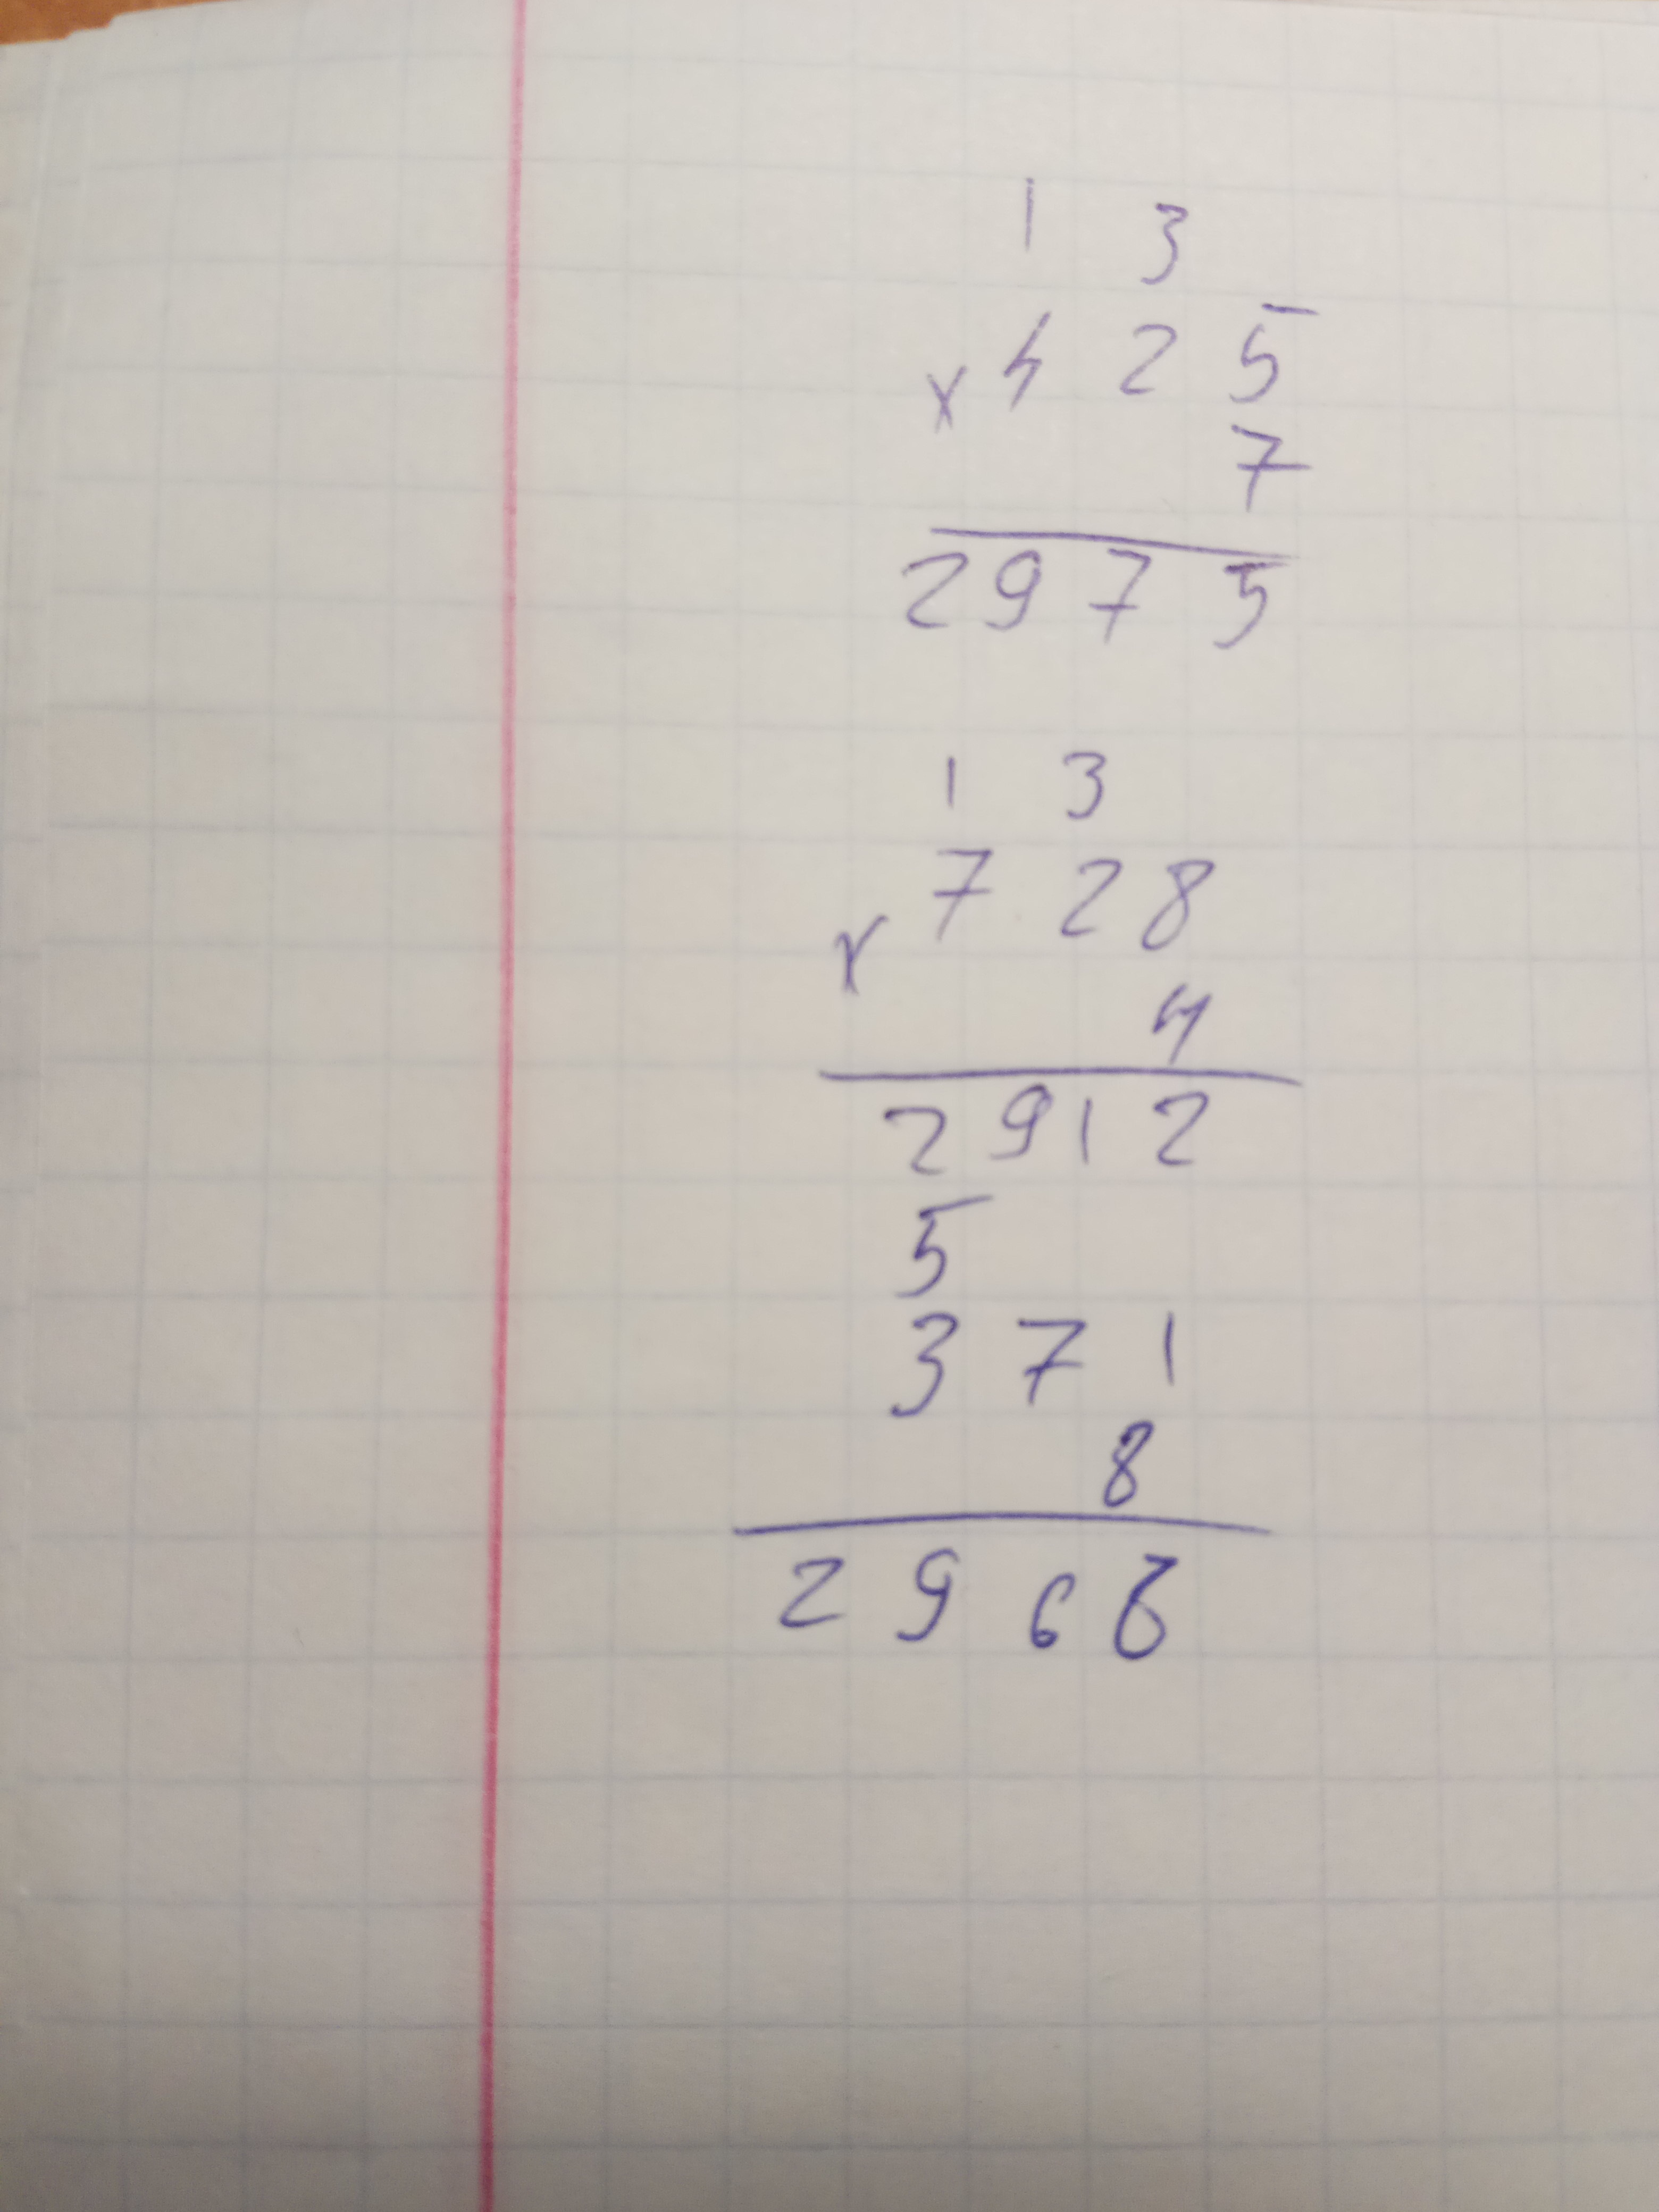 1 3
x 4 2 5
7
2 9 7 5
1 3
x 7 2 8
4
2 9 1 2
5
3 7 1
8
2 9 6 8